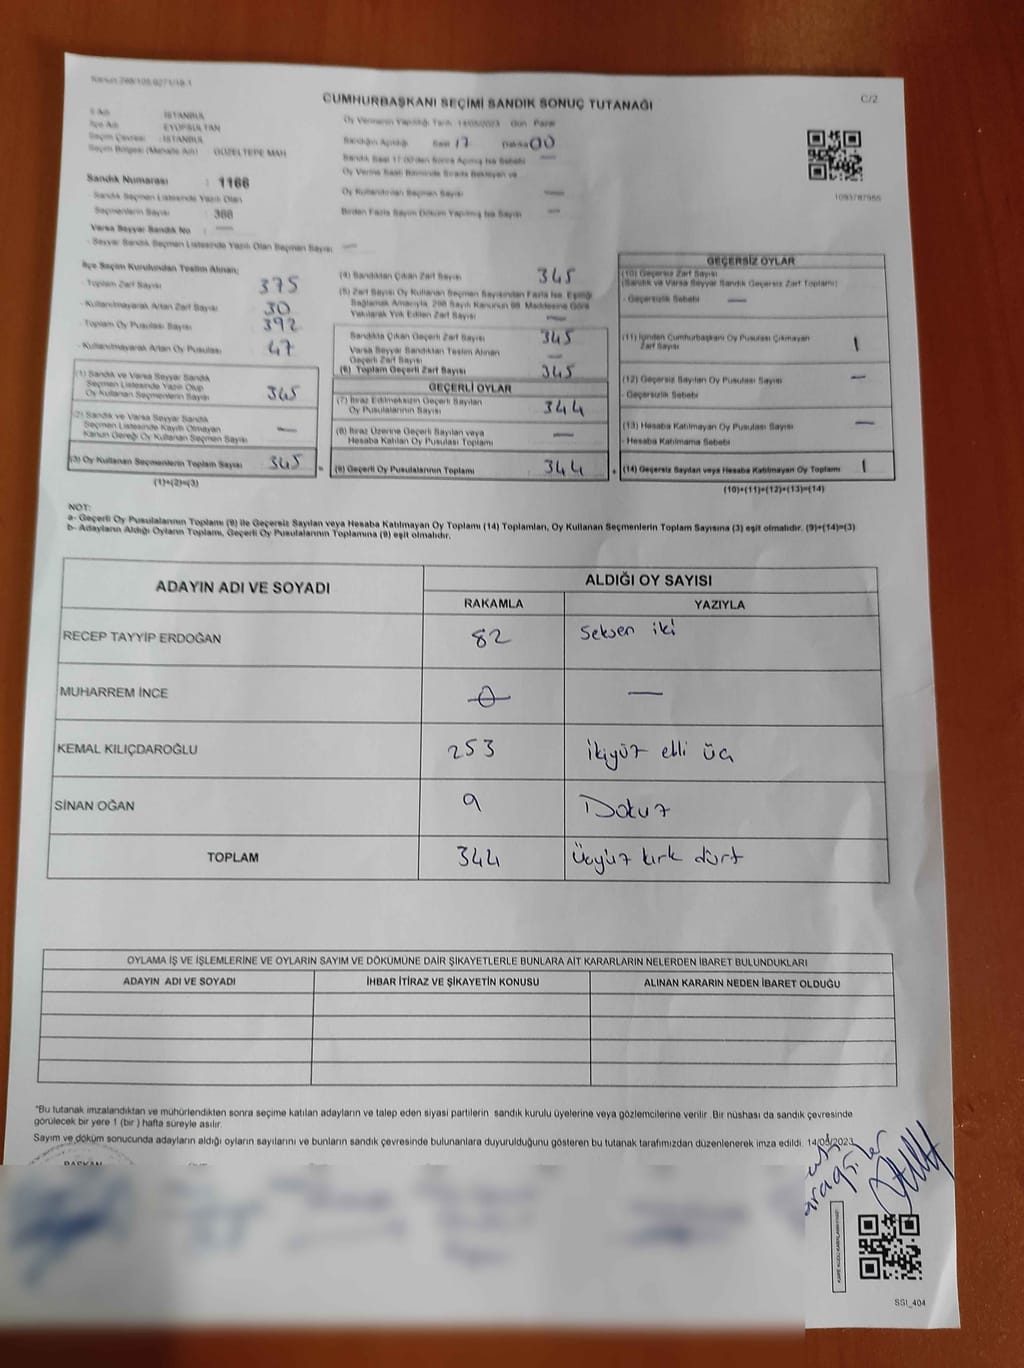 CUMHURBAŞKANI SEÇİMİ SANDIK SONUÇ TUTANAĞI
C/2
İl Adı : İSTANBUL
İlçe Adı : EYÜPSULTAN
Seçim Çevresi : İSTANBUL
Seçim Bölgesi (Mahalle Adı) : GÜZELTEPE MAH.
Sandık Numarası : 1166
Sandık Seçmen Listesinde Yazılı Olan
Seçmenlerin Sayısı : 388
Varsa Seyyar Sandık No : —
- Seyyar Sandık Seçmen Listesinde Yazılı Olan Seçmen Sayısı —
Oy Vermenin Yapıldığı Tarih: 14/05/2023 Gün: Pazar
Sandığın Açıldığı Saat 17 Dakika 00
Sandık Saat 17:00'den Sonra Açılmış İse Sebebi —
Oy Verme Saati Bitiminde Sırada Bekleyen ve
Oy Kullandırılan Seçmen Sayısı —
Birden Fazla Sayım Döküm Yapılmış İse Sayısı —
1093787955
İlçe Seçim Kurulundan Teslim Alınan;
- Toplam Zarf Sayısı 375
- Kullanılmayarak Artan Zarf Sayısı 30
- Toplam Oy Pusulası Sayısı 392
- Kullanılmayarak Artan Oy Pusulası 47
(1) Sandık ve Varsa Seyyar Sandık
Seçmen Listesinde Yazılı Olup
Oy Kullanan Seçmenlerin Sayısı 345
(2) Sandık ve Varsa Seyyar Sandık
Seçmen Listesinde Kayıtlı Olmayan
Kanun Gereği Oy Kullanan Seçmen Sayısı —
(3) Oy Kullanan Seçmenlerin Toplam Sayısı 345
(1)+(2)=(3)
(4) Sandıktan Çıkan Zarf Sayısı 345
(5) Zarf Sayısı Oy Kullanan Seçmen Sayısından Fazla İse, Eşitliği
Sağlamak Amacıyla, 298 Sayılı Kanunun 98. Maddesine Göre
Yakılarak Yok Edilen Zarf Sayısı —
Sandıkta Çıkan Geçerli Zarf Sayısı 345
Varsa Seyyar Sandıktan Teslim Alınan
Geçerli Zarf Sayısı —
(6) Toplam Geçerli Zarf Sayısı 345
GEÇERLİ OYLAR
(7) İtiraz Edilmeksizin Geçerli Sayılan
Oy Pusulalarının Sayısı 344
(8) İtiraz Üzerine Geçerli Sayılan veya
Hesaba Katılan Oy Pusulası Toplamı —
= (9) Geçerli Oy Pusulalarının Toplamı 344
GEÇERSİZ OYLAR
(10) Geçersiz Zarf Sayısı
(Sandık ve Varsa Seyyar Sandık Geçersiz Zarf Toplamı)
- Geçersizlik Sebebi —
(11) İçinden Cumhurbaşkanı Oy Pusulası Çıkmayan
Zarf Sayısı 1
(12) Geçersiz Sayılan Oy Pusulası Sayısı —
- Geçersizlik Sebebi
(13) Hesaba Katılmayan Oy Pusulası Sayısı —
- Hesaba Katılmama Sebebi
+ (14) Geçersiz Sayılan veya Hesaba Katılmayan Oy Toplamı 1
(10)+(11)+(12)+(13)=(14)
NOT:
a- Geçerli Oy Pusulalarının Toplamı (9) ile Geçersiz Sayılan veya Hesaba Katılmayan Oy Toplamı (14) Toplamları, Oy Kullanan Seçmenlerin Toplam Sayısına (3) eşit olmalıdır. (9)+(14)=(3)
b- Adayların Aldığı Oyların Toplamı, Geçerli Oy Pusulalarının Toplamına (9) eşit olmalıdır.
ADAYIN ADI VE SOYADI
ALDIĞI OY SAYISI
RAKAMLA YAZIYLA
RECEP TAYYİP ERDOĞAN 82 Seksen iki
MUHARREM İNCE 0 —
KEMAL KILIÇDAROĞLU 253 ikiyüz elli üç
SİNAN OĞAN 9 Dokuz
TOPLAM 344 Üçyüz kırk dört
OYLAMA İŞ VE İŞLEMLERİNE VE OYLARIN SAYIM VE DÖKÜMÜNE DAİR ŞİKAYETLERLE BUNLARA AİT KARARLARIN NELERDEN İBARET BULUNDUKLARI
ADAYIN ADI VE SOYADI İHBAR İTİRAZ VE ŞİKAYETİN KONUSU ALINAN KARARIN NEDEN İBARET OLDUĞU
"Bu tutanak imzalandıktan ve mühürlendikten sonra seçime katılan adayların ve talep eden siyasi partilerin sandık kurulu üyelerine veya gözlemcilerine verilir. Bir nüshası da sandık çevresinde
görülecek bir yere 1 (bir) hafta süreyle asılır.
Sayım ve döküm sonucunda adayların aldığı oyların sayılarını ve bunların sandık çevresinde bulunanlara duyurulduğunu gösteren bu tutanak tarafımızdan düzenlenerek imza edildi. 14/05/2023
BAŞKAN
SSI_404